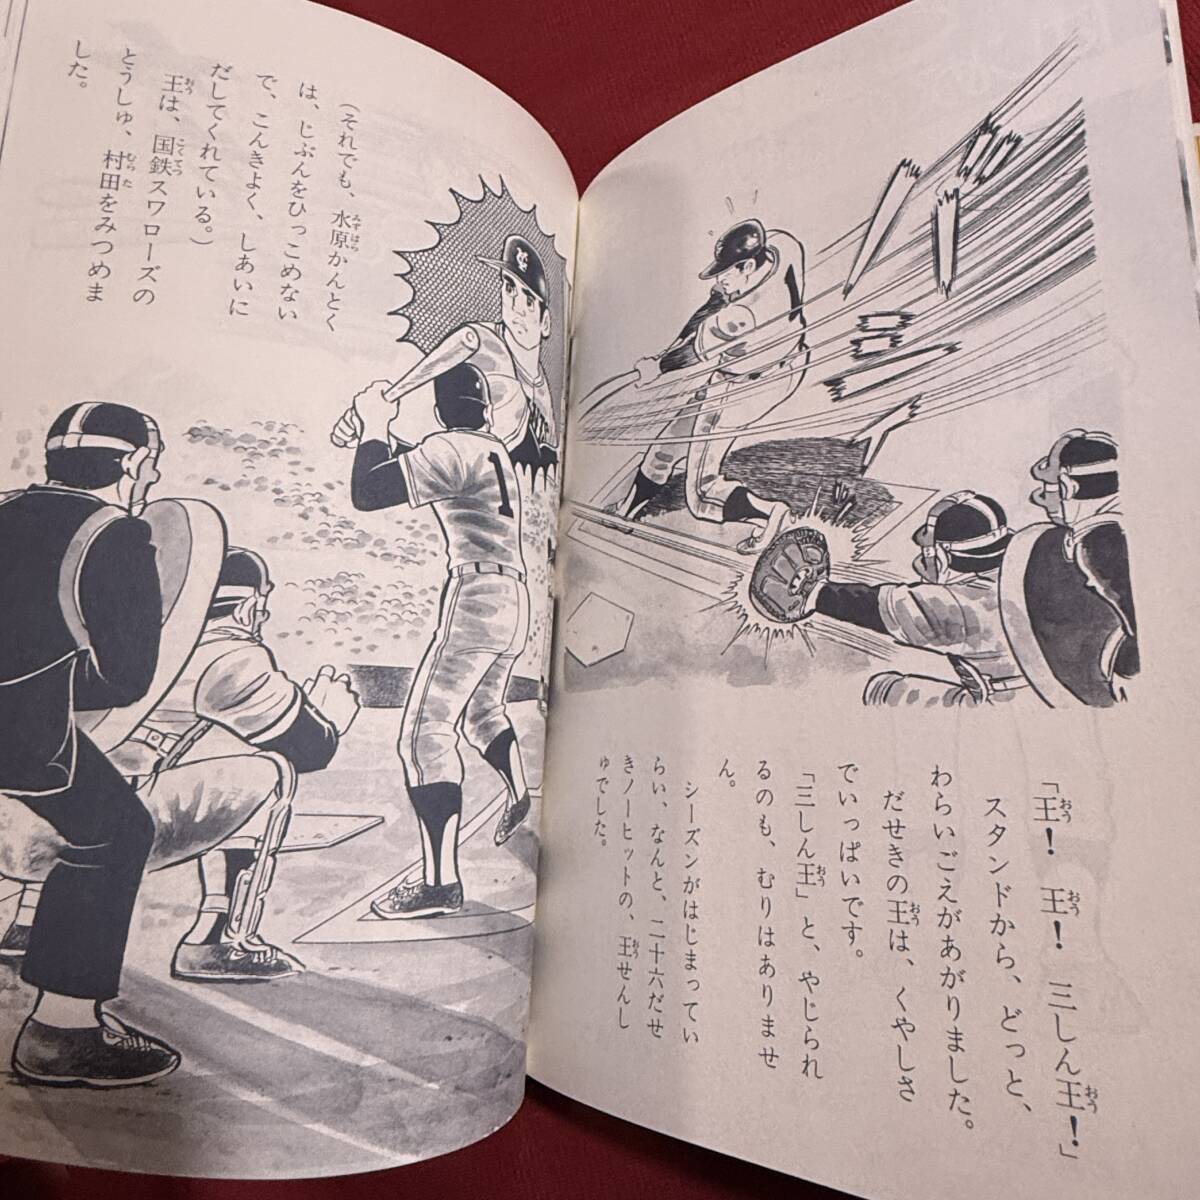 「王！　王！　三しん王！」
スタンドから、どっと、
わらいごえがあがりました。
だせきの王は、くやしさ
でいっぱいです。
「三しん王」と、やじられ
るのも、むりはありませ
ん。
シーズンがはじまってい
らい、なんと、二十六だせ
きノーヒットの、王せんし
ゅでした。
（それでも、水原かんとく
は、じぶんをひっこめない
で、こんきよく、しあいに
だしてくれている。）
王は、国鉄スワローズの
とうしゅ、村田をみつめま
した。
1